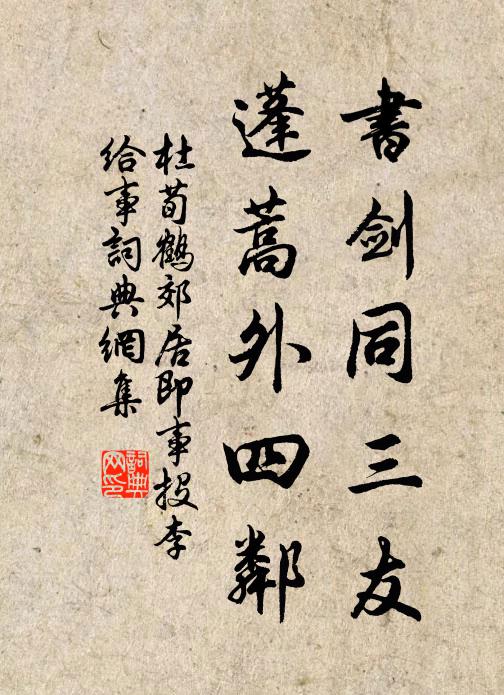 書劍同三友
蓬蒿外四鄰
杜荀鶴郊居即事投李
給事詞典網集
詞典
网印